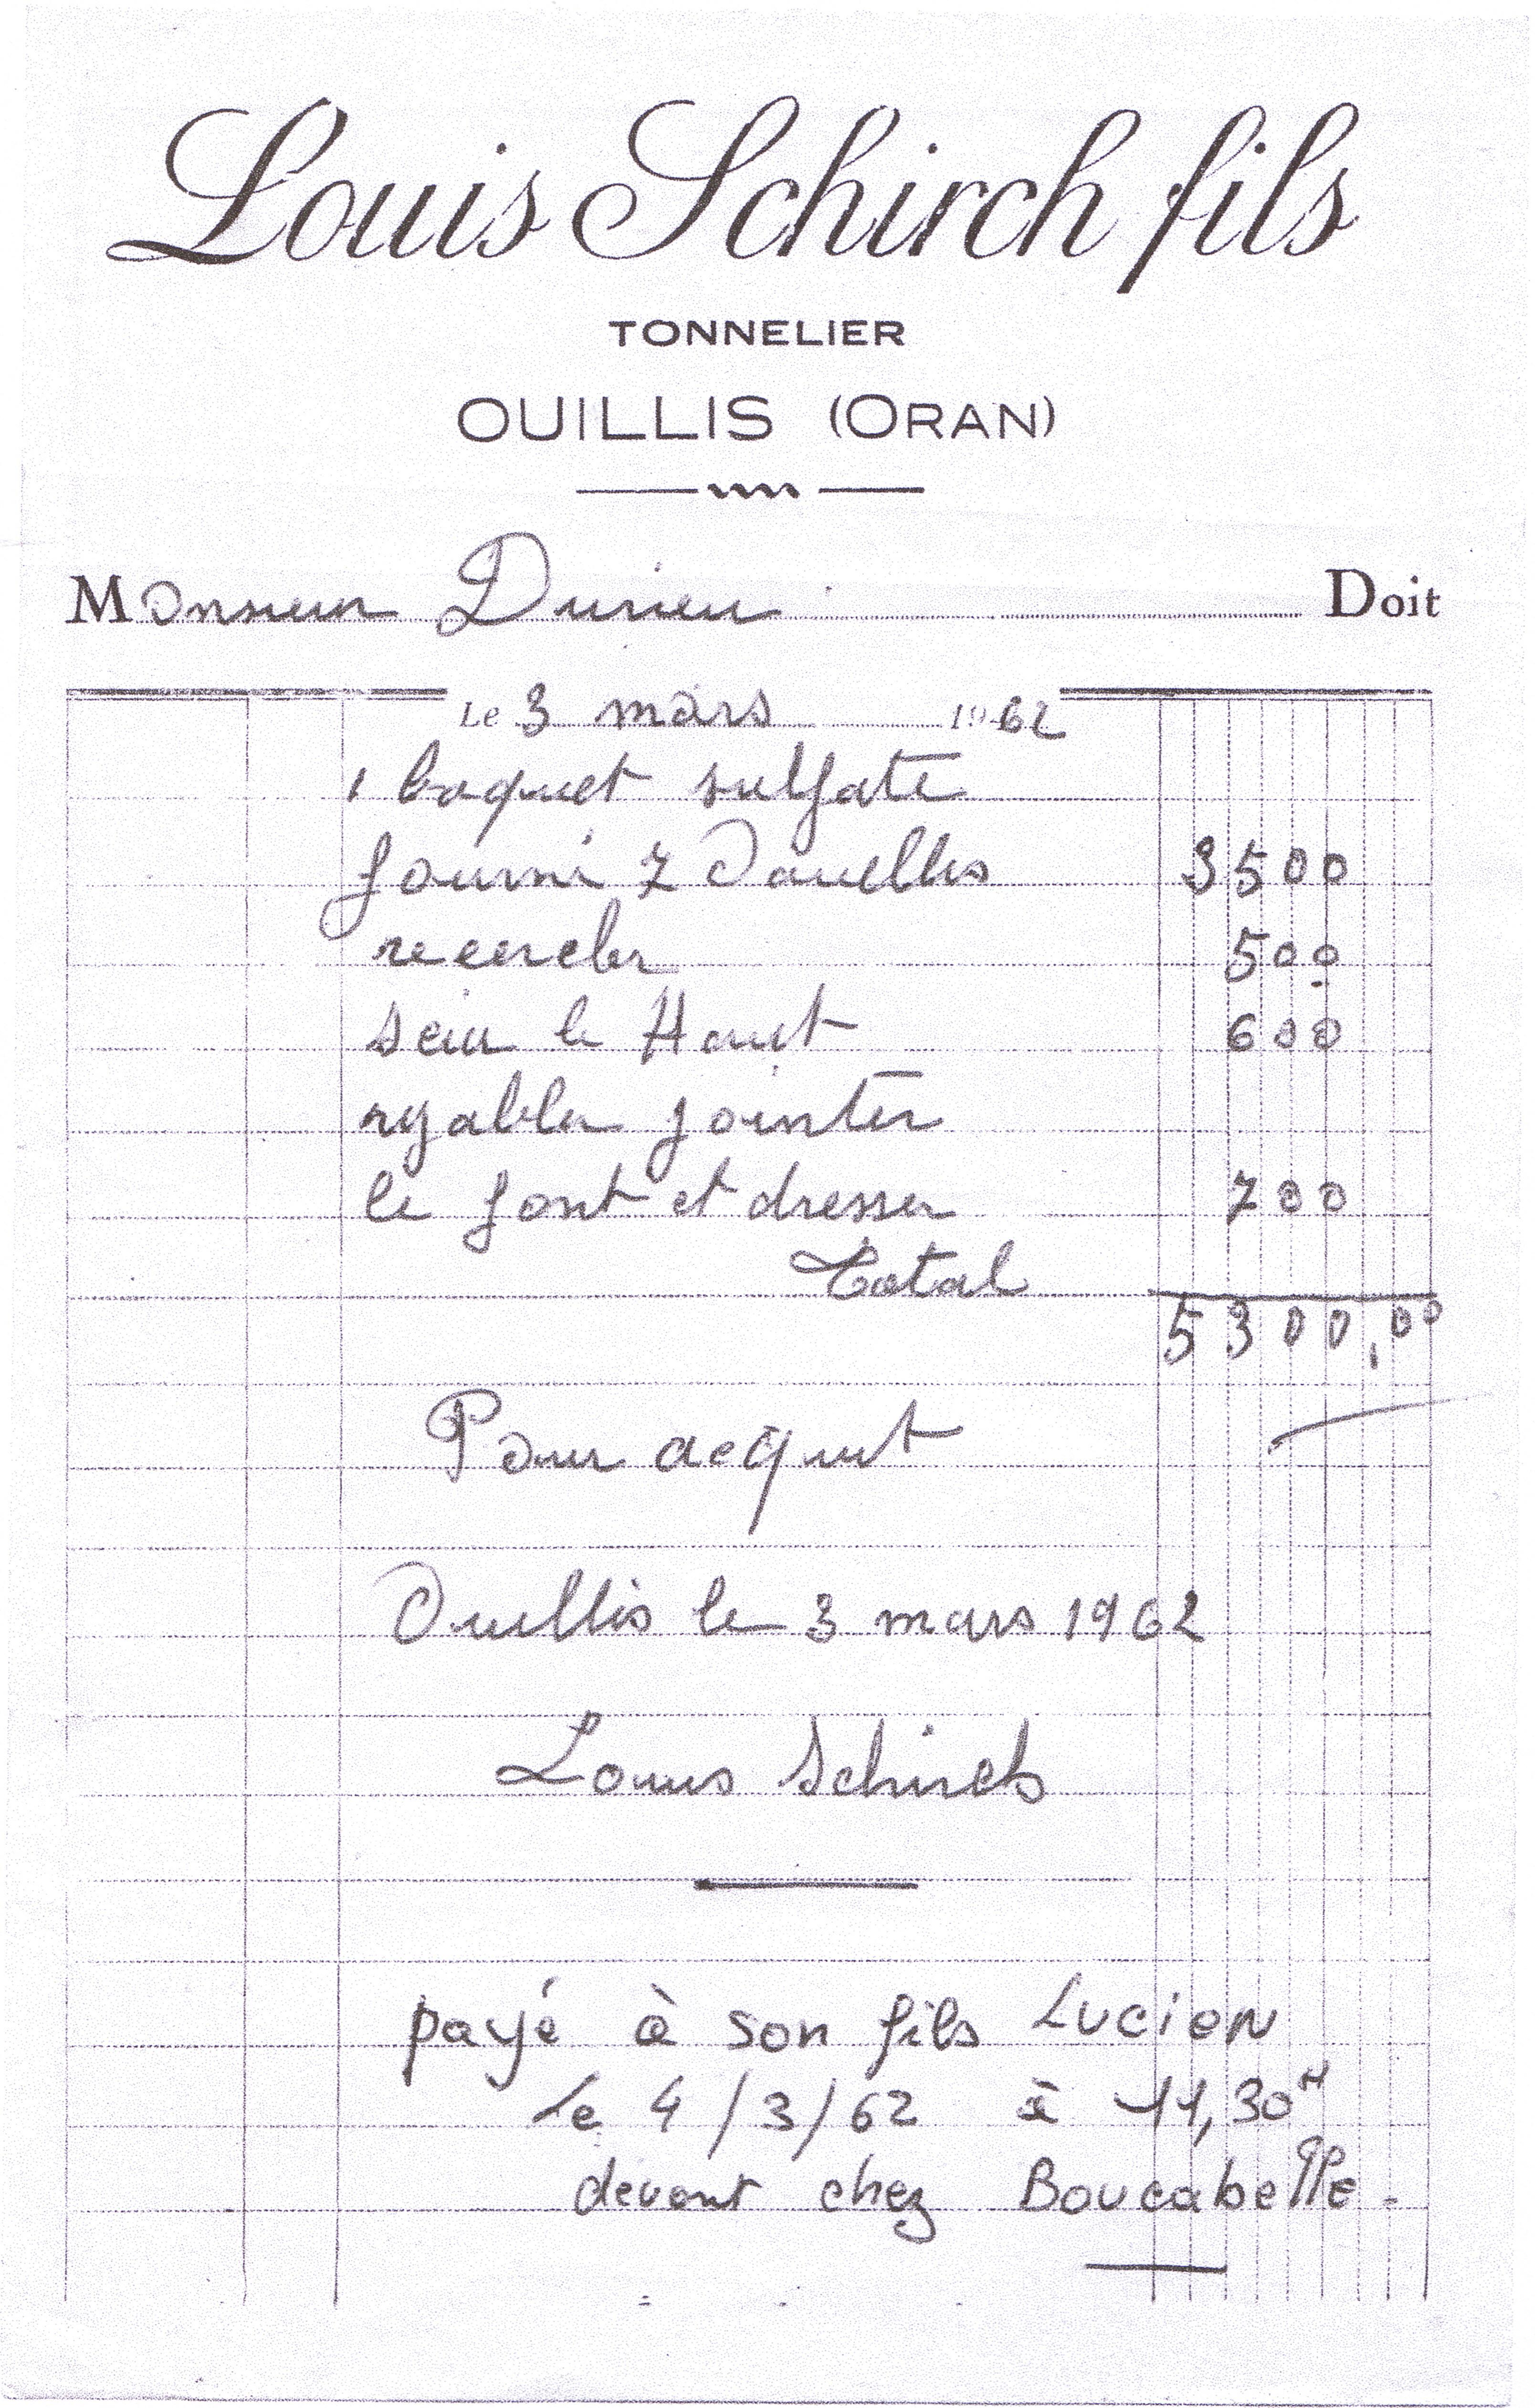 Louis Schirch fils
TONNELIER
OUILLIS (ORAN)
Monsieur Durieu Doit
Le 3 mars 1962
1 baquet sulfate
fourni 7 Douelles 3500
recercler 500
scier le Haut 600
rejabler jointer
le font et dresser 700
Total
5300,00
Pour acquit
Ouillis le 3 mars 1962
Louis Schirch
payé à son fils Lucien
le 4/3/62 à 11,30H
devant chez Boucabeille.